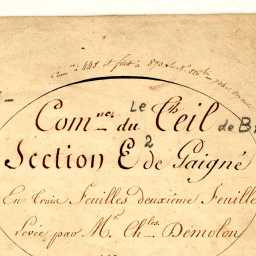 Le Ch
Com.nes du Ceil de B
Section E 2 de Gaigné
En trois Feuilles deuxième Feuille
Levée par M.r Ch.les Demolon